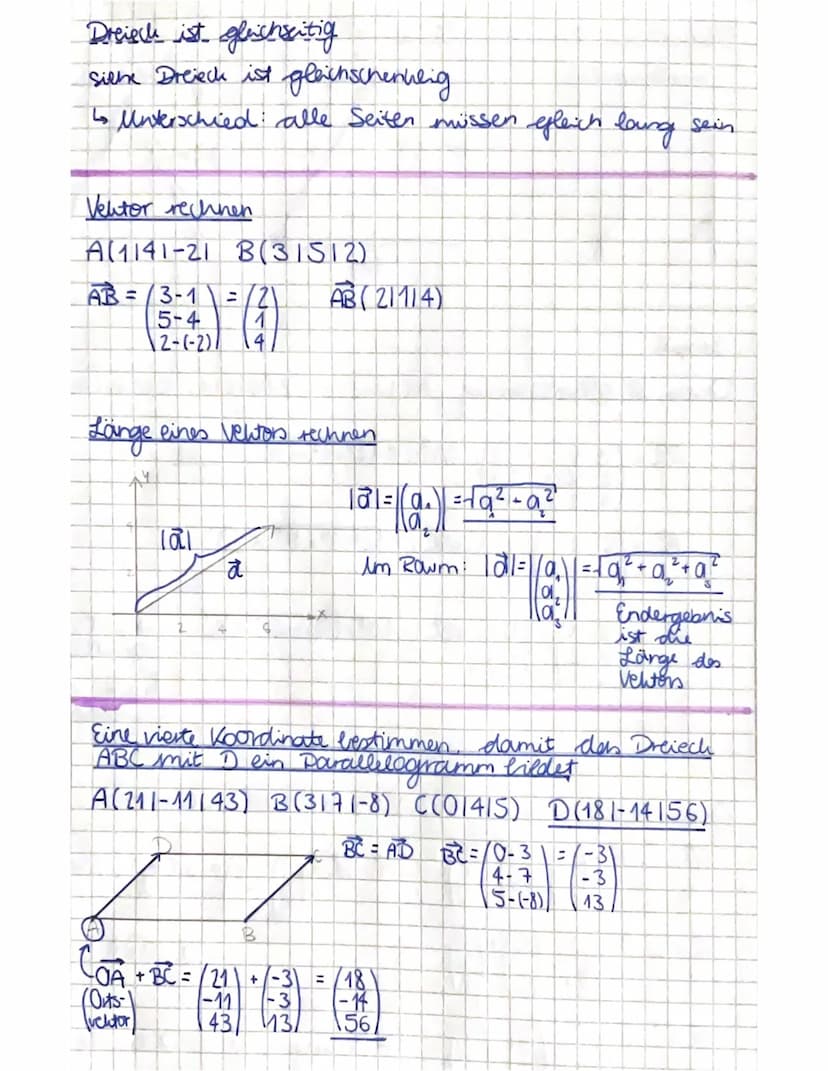 Dreieck ist gleichseitig
siehe Dreieck ist gleichschenkelig
↳ Unterschied: alle Seiten müssen gleich lang sein
Vektor rechnen
A(1|4|-2| B(3|5|2)
AB = (3-1 5-4 2-(-2)) = (2 1 4) AB(2|1|4)
Länge eines Vektors rechnen
y
|a| = |(a₁ a₂)| = √a₁² - a₂²
|a|
a
Im Raum: |a| = |(a₁ a₂ a₃)| = √a₁² + a₂² + a₃²
x
2 4 6
Endergebnis
ist die
Länge des
Vektors
Eine vierte Koordinate bestimmen, damit das Dreieck
ABC mit D ein Parallelogramm bildet
A(21|-11|43) B(3|7|-8) C(0|4|5) D(18|-14|56)
D C
BC = AD BC = (0-3 4-7 5-(-8)) = (-3 -3 13)
A B
OA + BC = (21 -11 43) + (-3 -3 13) = (18 -14 56)
(Orts-
vektor)